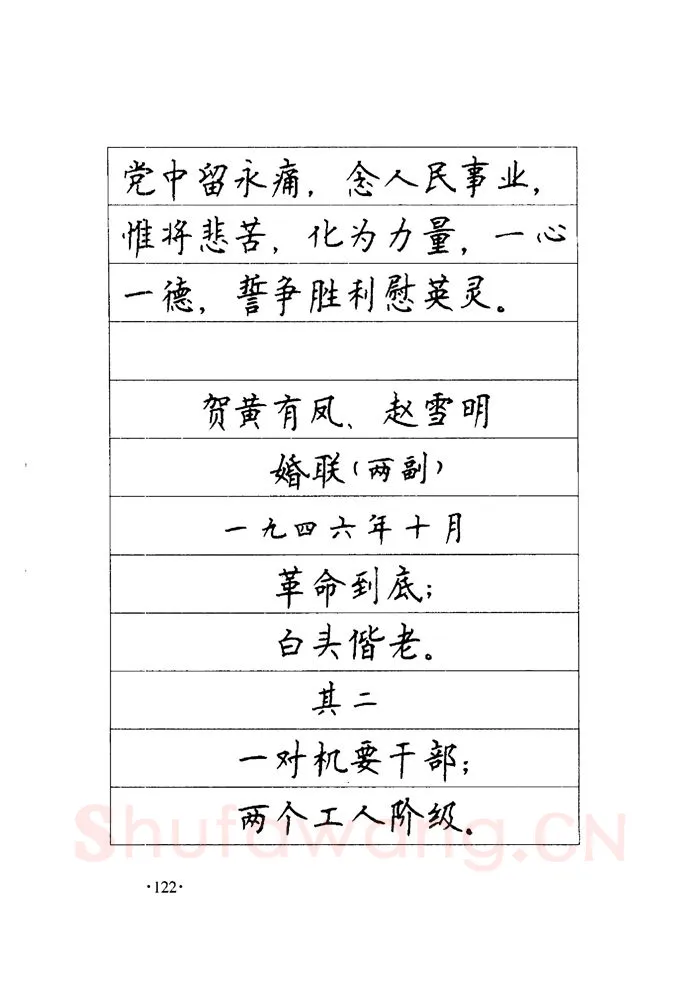 党中留永痛，念人民事业，
惟将悲苦，化为力量，一心
一德，誓争胜利慰英灵。
贺黄有凤、赵雪明
婚联（两副）
一九四六年十月
革命到底；
白头偕老。
其二
一对机要干部；
两个工人阶级。
Shufawang.CN
·122·